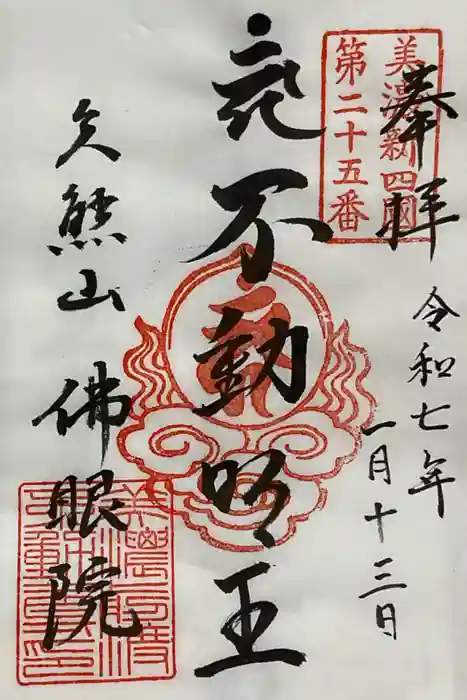 奉拝
美濃新四國
第二十五番
令和七年
一月十三日
不動明王
久熊山 佛眼院